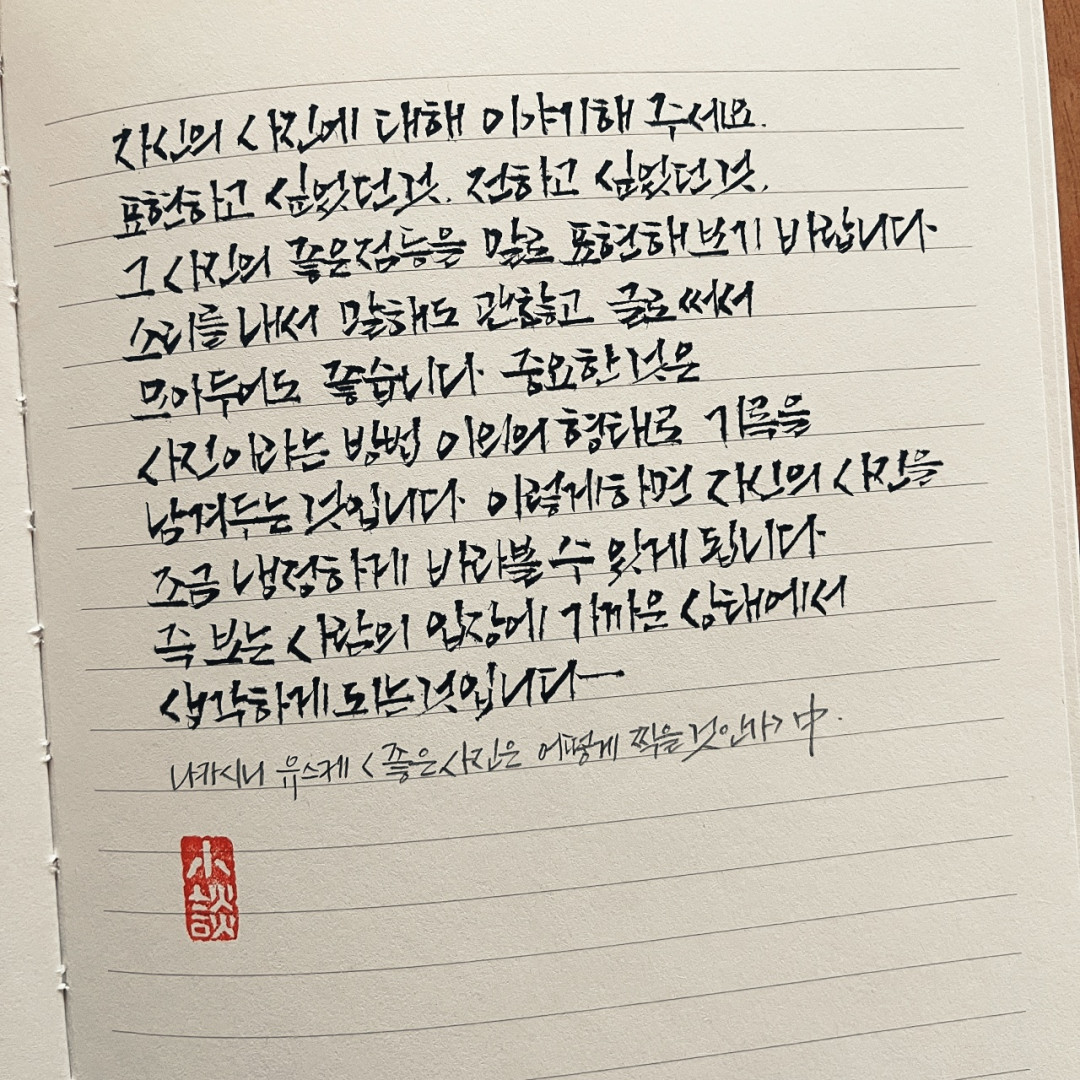 자신의 사진에 대해 이야기해 주세요.
표현하고 싶었던것. 전하고 싶었던것.
그 사진의 좋은점등을 말로 표현해보기 바랍니다.
소리를 내서 말해도 괜찮고 글로써서
모아두어도 좋습니다. 중요한것은
사진이라는 방법 이외의 형태로 기록을
남겨두는 것입니다. 이렇게하면 자신의 사진을
조금 냉정하게 바라볼 수 있게 됩니다.
즉 보는 사람의 입장에 가까운 상태에서
생각하게 되는것입니다—
나카시니 유스케 <좋은사진은 어떻게 찍을것인가> 中.
小談